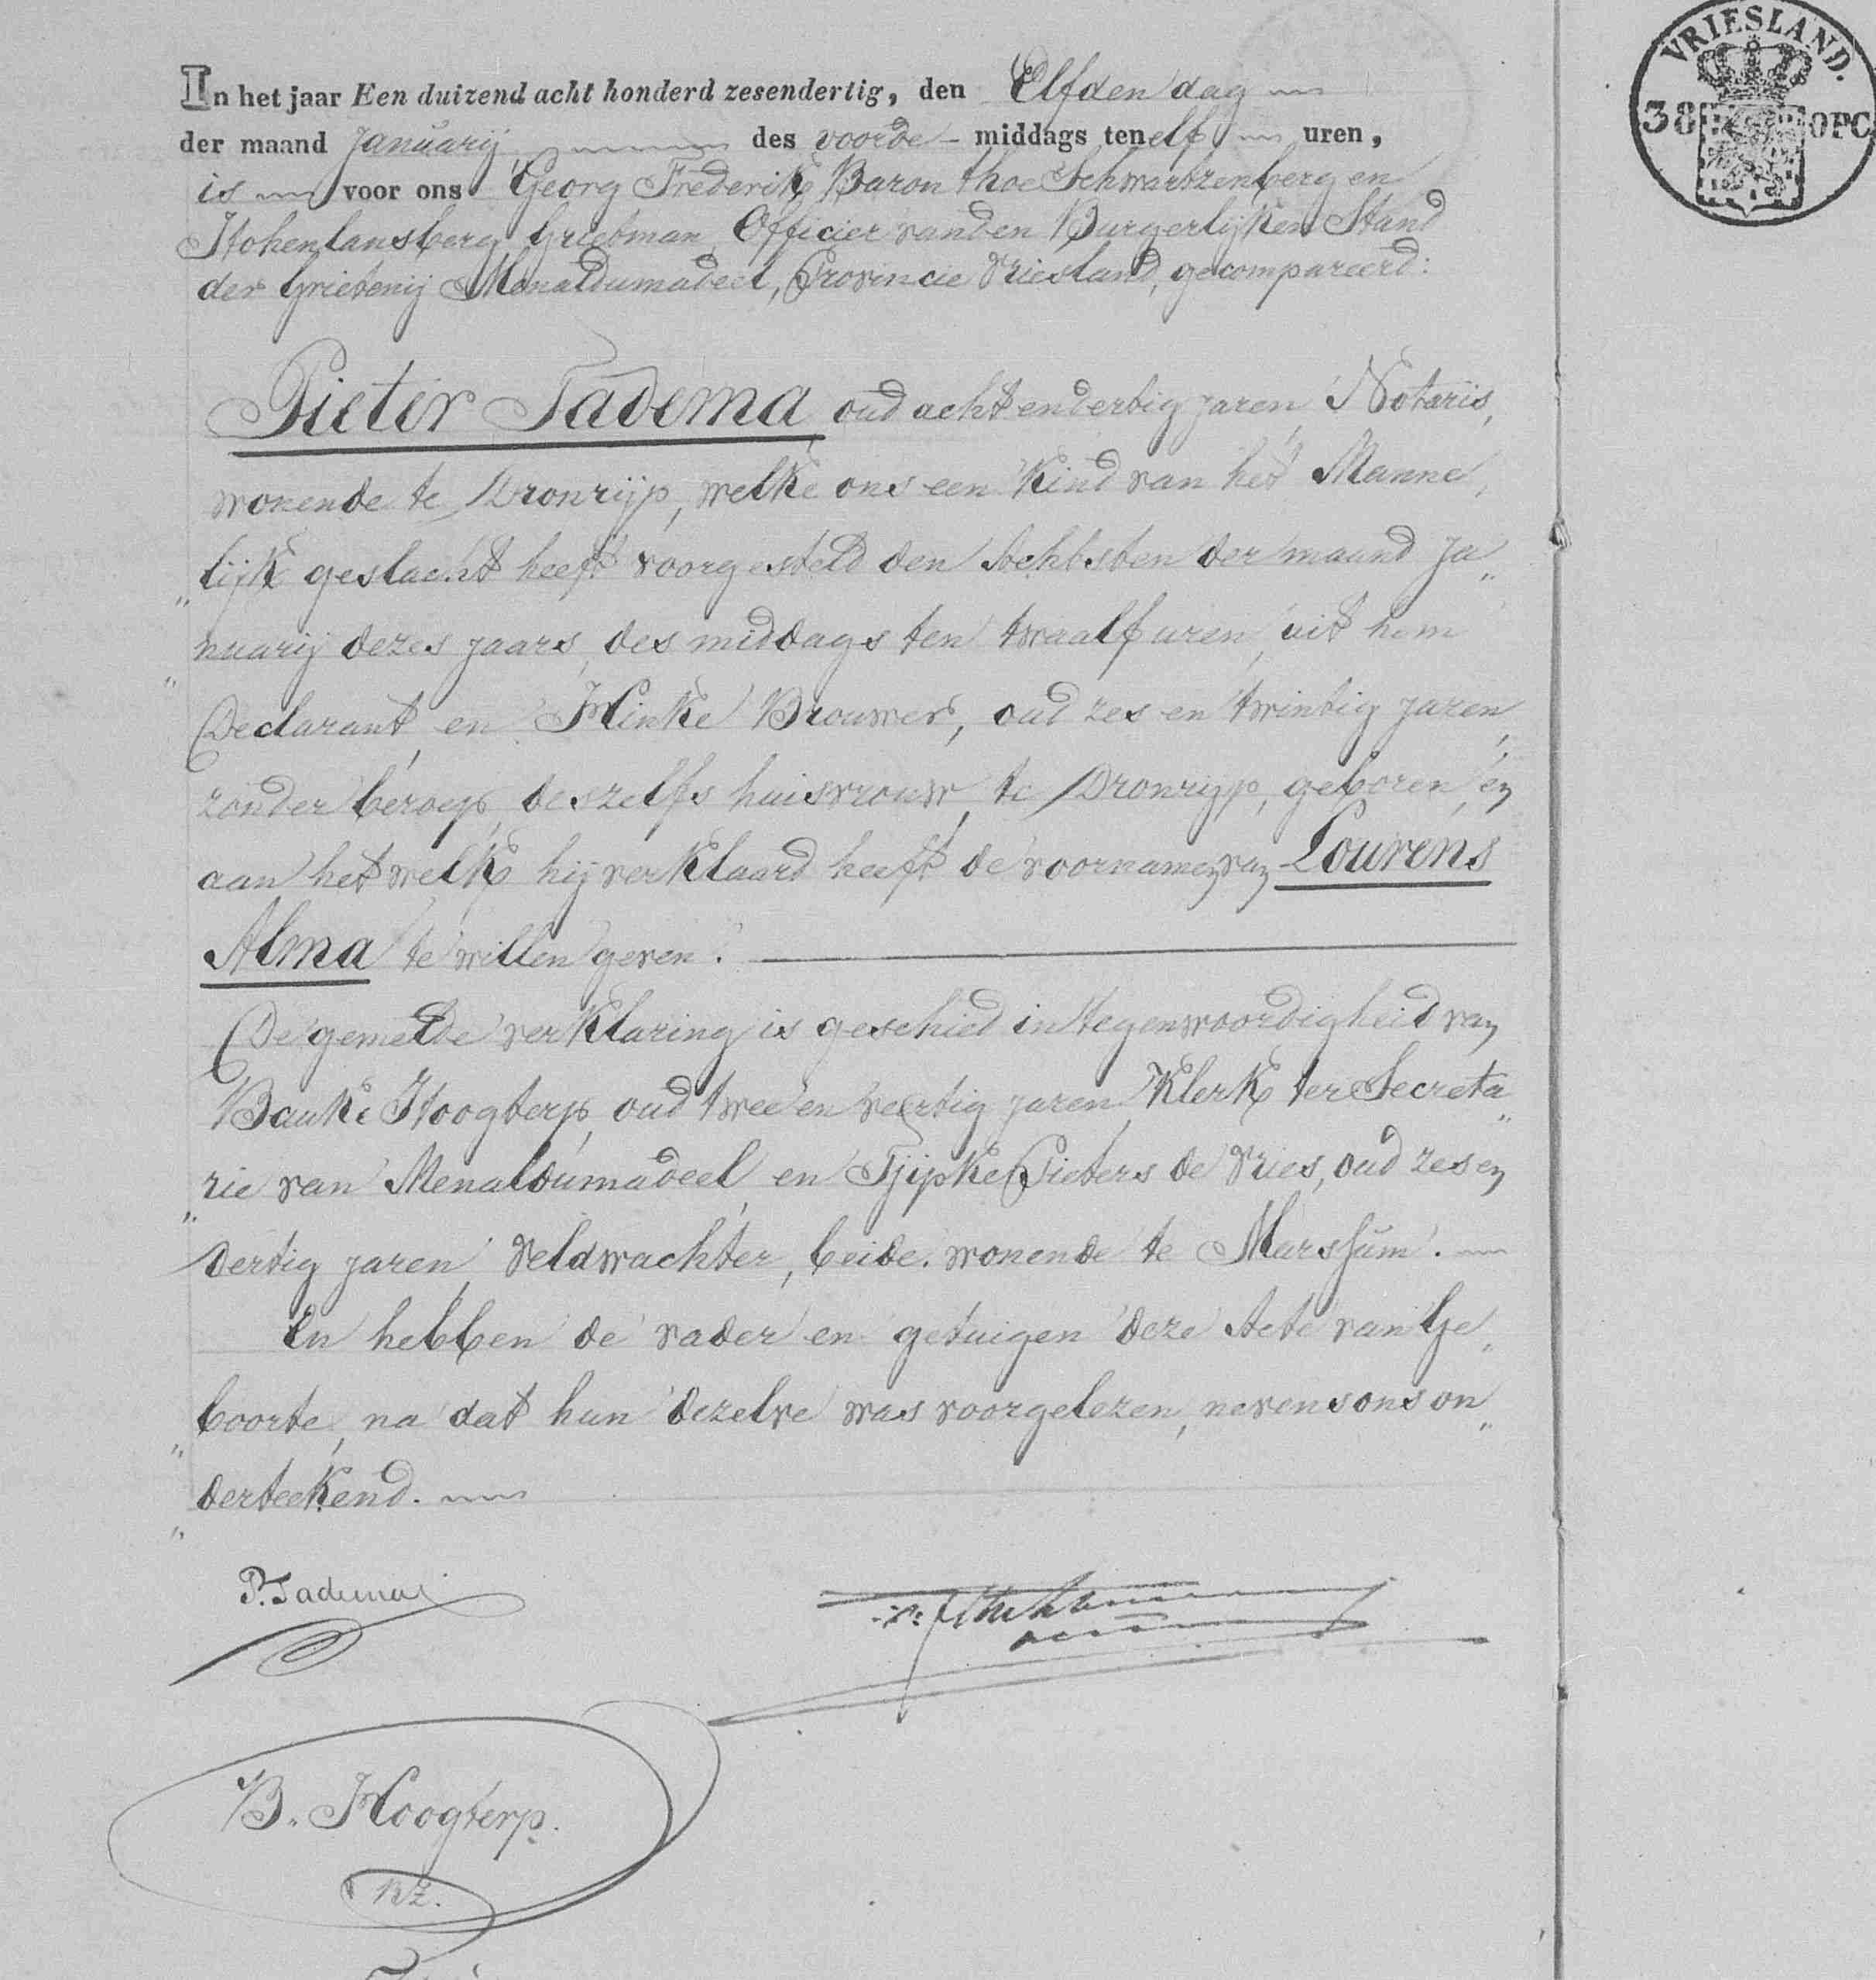 In het jaar Een duizend acht honderd zesendertig, den Elfden dag
der maand Januarij des voorde - middags ten elf uren,
is voor ons Georg Frederik Baron thoe Schwartzenberg en
Hohenlansberg Grietman Officier van den Burgerlijken Stand
der Grietenij Menaldumadeel, Provincie Vriesland, gecompareerd:
Pieter Tadema oud acht en dertig jaren, Notaris,
wonende te Dronrijp, welke ons een Kind van het Manne„
„lijk geslacht heeft voorgesteld den Achtsten der maand Ja„
„nuarij dezes jaars, des middags ten twaalf uren, uit hem
Declarant en Hinke Brouwer, oud zes en twintig jaren,
zonder beroep, deszelfs huisvrouw, te Dronrijp, geboren, en
aan het welk hij verklaard heeft de voornamen van Lourens
Alma te willen geven.
De gemelde verklaring is geschied in tegenwoordigheid van
Bauke Hoogterp, oud twee en veertig jaren Klerk ter Secreta„
„rie van Menaldumadeel en Tjipke Pieters de Vries, oud zes en
dertig jaren, Veldwachter, beide wonende te Marssum.
En hebben de vader en getuigen deze Acte van Ge„
„boorte, na dat hun dezelve was voorgelezen, nevens ons on„
„derteekend.
P. Tadema
B. Hoogterp.
Bz.
VRIESLAND.
38 OPC